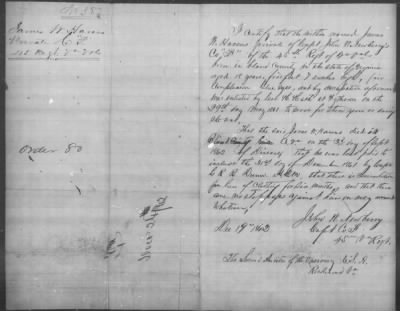 No 387
James W. Havens
Private Co F
45th Regt Va Vols
Order 80
I certify that the within named James
W. Havens private of Capt John W. Newberry
Co "F" of the 45th Regt of Va Vols
born in Bland County in the state of Virginia
aged 18 years, five feet 7 inches high, fair
complexion blue eyes, and by occupation a farmer
was enlisted by Col H. Heth at Wytheville on the
29th day May 1861 to serve for three years or during
the war.
That the said James W. Havens died in
Bland County on the 3d day of Sept
1862 of disease, that he was last paid to
include the 31st day of December 1861 by Capt
R. R. that there is commutation
for of clothing for six months, and that there
are no stoppages against him on my record
whatever,
Dec 19th 1862
John W. Newberry
Capt Co. F
45th Va Regt
To the Second Auditor of the Treasury C.S.A.
Richmond Va